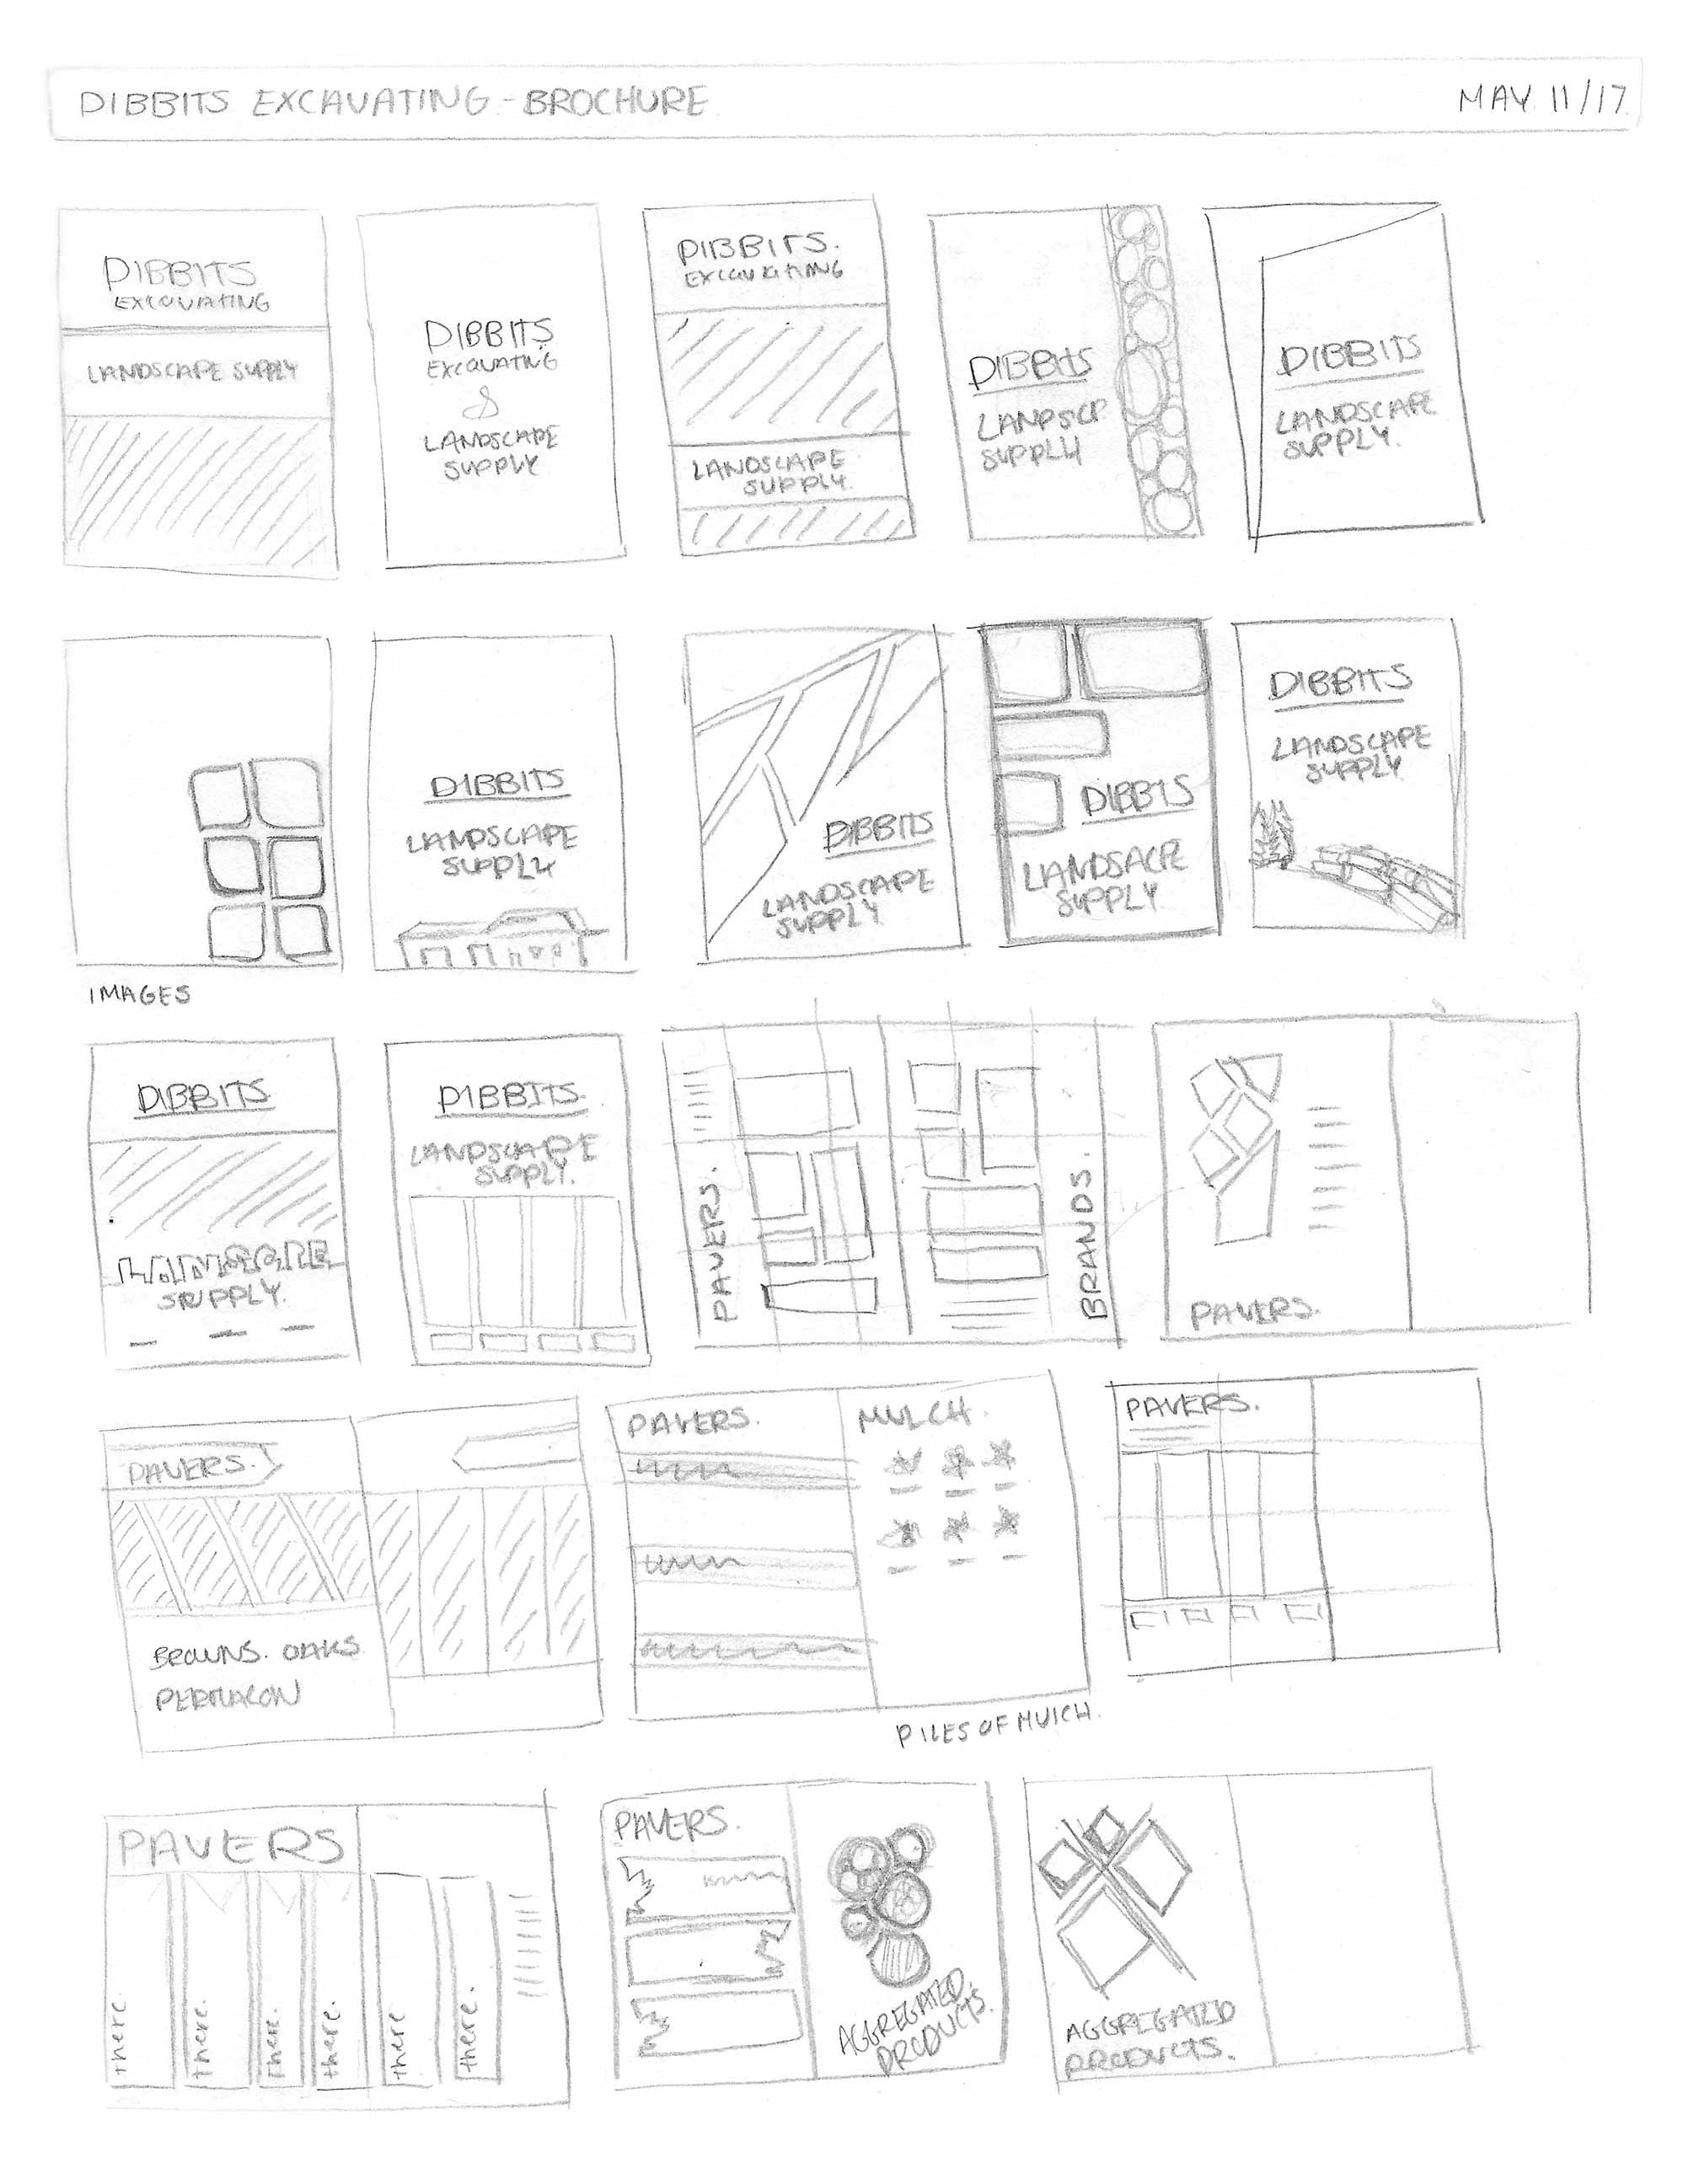 DIBBITS EXCAVATING - BROCHURE
MAY 11/17
DIBBITS
EXCAVATING
LANDSCAPE SUPPLY
DIBBITS
EXCAVATING
&
LANDSCAPE
SUPPLY
DIBBITS.
EXCAVATING
LANDSCAPE
SUPPLY.
DIBBITS
LANDSCP
SUPPLY
DIBBITS
LANDSCAPE
SUPPLY.
IMAGES
DIBBITS
LANDSCAPE
SUPPLY
DIBBITS
LANDSCAPE
SUPPLY
DIBBITS
LANDSACPE
SUPPLY
DIBBITS
LANDSCAPE
SUPPLY
DIBBITS
LANDSCAPE
SUPPLY.
DIBBITS.
LANDSCAPE
SUPPLY.
PAVERS.
BRANDS.
PAVERS.
PAVERS.
BROWNS. OAKS
PERMACON
PAVERS.
MULCH.
PILES OF MULCH.
PAVERS.
PAVERS
there
there.
there.
there.
there
there.
PAVERS.
AGGREGATED
PRODUCTS.
AGGREGATED
PRODUCTS.